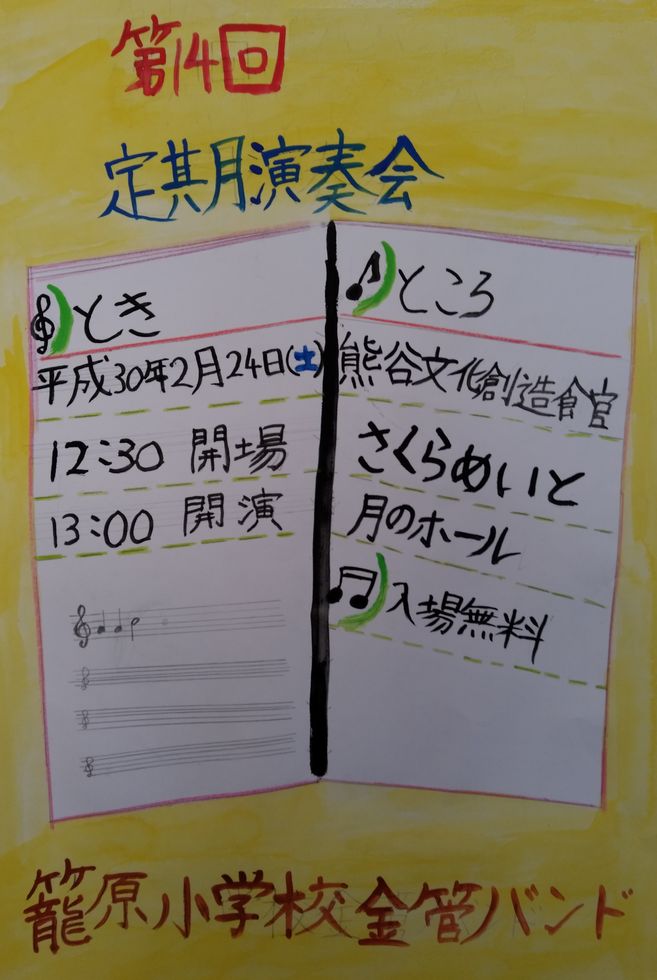 第14回
定期演奏会
とき
平成30年2月24日(土)
12:30 開場
13:00 開演
ところ
熊谷文化創造館
さくらめいと
月のホール
入場無料
籠原小学校金管バンド